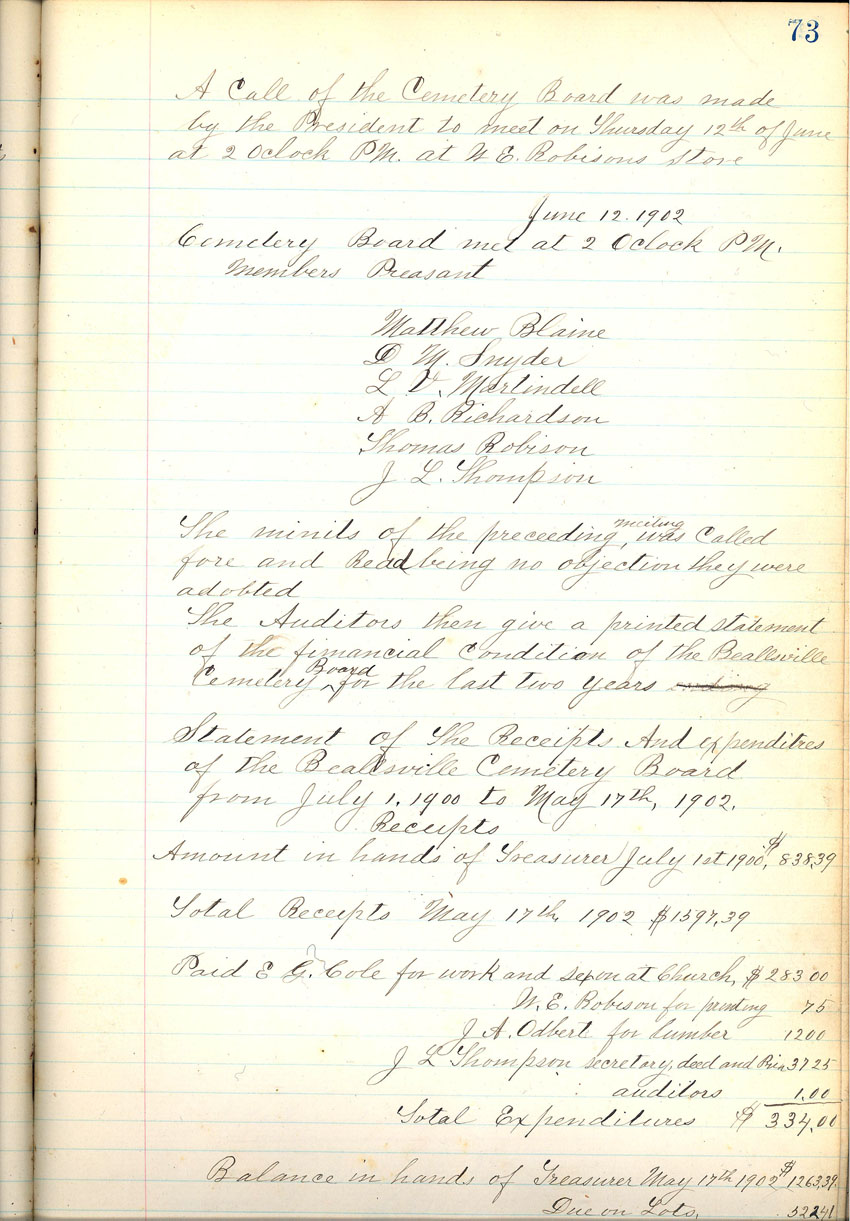 73
A Call of the Cemetery Board was made
by the President to meet on Thursday 12th of June
at 2 Oclock PM. at W E. Robisons store
June 12. 1902
Cemetery Board met at 2 Oclock PM.
Members Preasant
Matthew Blaine
D M. Snyder
L V. Martindell
A B. Richardson
Thomas Robison
J L. Thompson
The minits of the preceeding meeting, was Called
fore and Read being no objection they were
adobted
The Auditors then give a printed statement
of the fimancial Condition of the Beallsville
Cemetery Board for the last two years
Statement of The Receipts And expenditres
of the Beallsville Cemetery Board
from July 1, 1900 to May 17th, 1902.
Receipts
Amount in hands of Treasurer July 1st 1900, $838,39
Total Receipts May 17th, 1902 $1597,39
Paid E G. Cole for work and sexon at Church, $283 00
W. E. Robison for printing 75
J A. Odbert for lumber 1200
J L Thompson secretary, deed and 3725
auditors 1.00
Total Expenditures $334,00
Balance in hands of Treasurer May 17th 1902 $1263,39
Due on Lots, 522 41